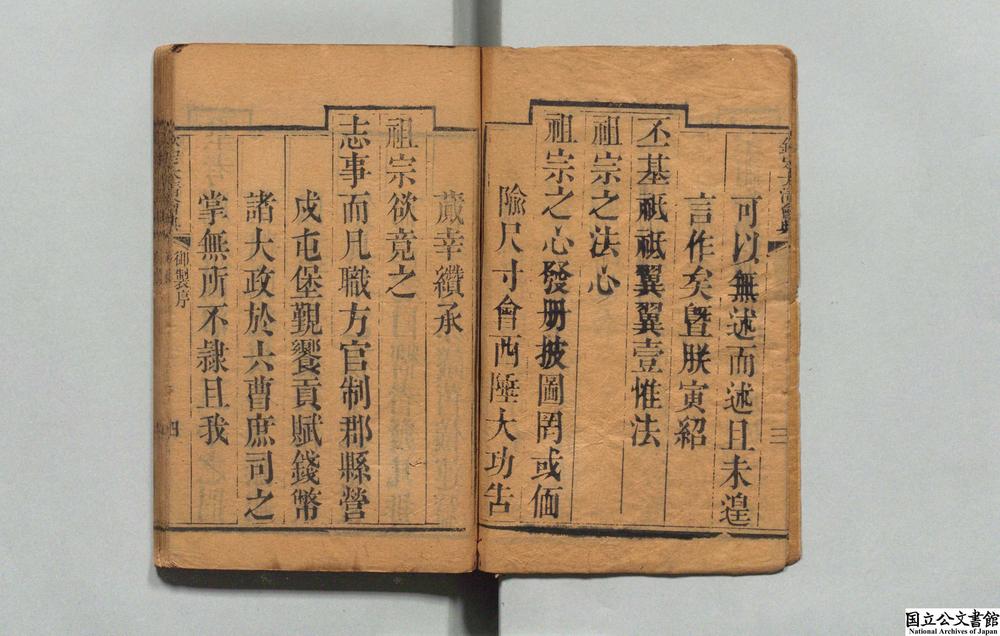 可以無述而述且未遑
言作矣曁朕寅紹
丕基祇祇翼翼壹惟法
祖宗之法心
祖宗之心發册披圖罔或偭
隃尺寸會西陲大功告
三
蕆幸纘承
祖宗欲竟之
志事而凡職方官制郡縣營
戍屯堡覲饗貢賦錢幣
諸大政於六曹庶司之
掌無所不隸且我
御製序
四
国立公文書館
National Archives of Japan